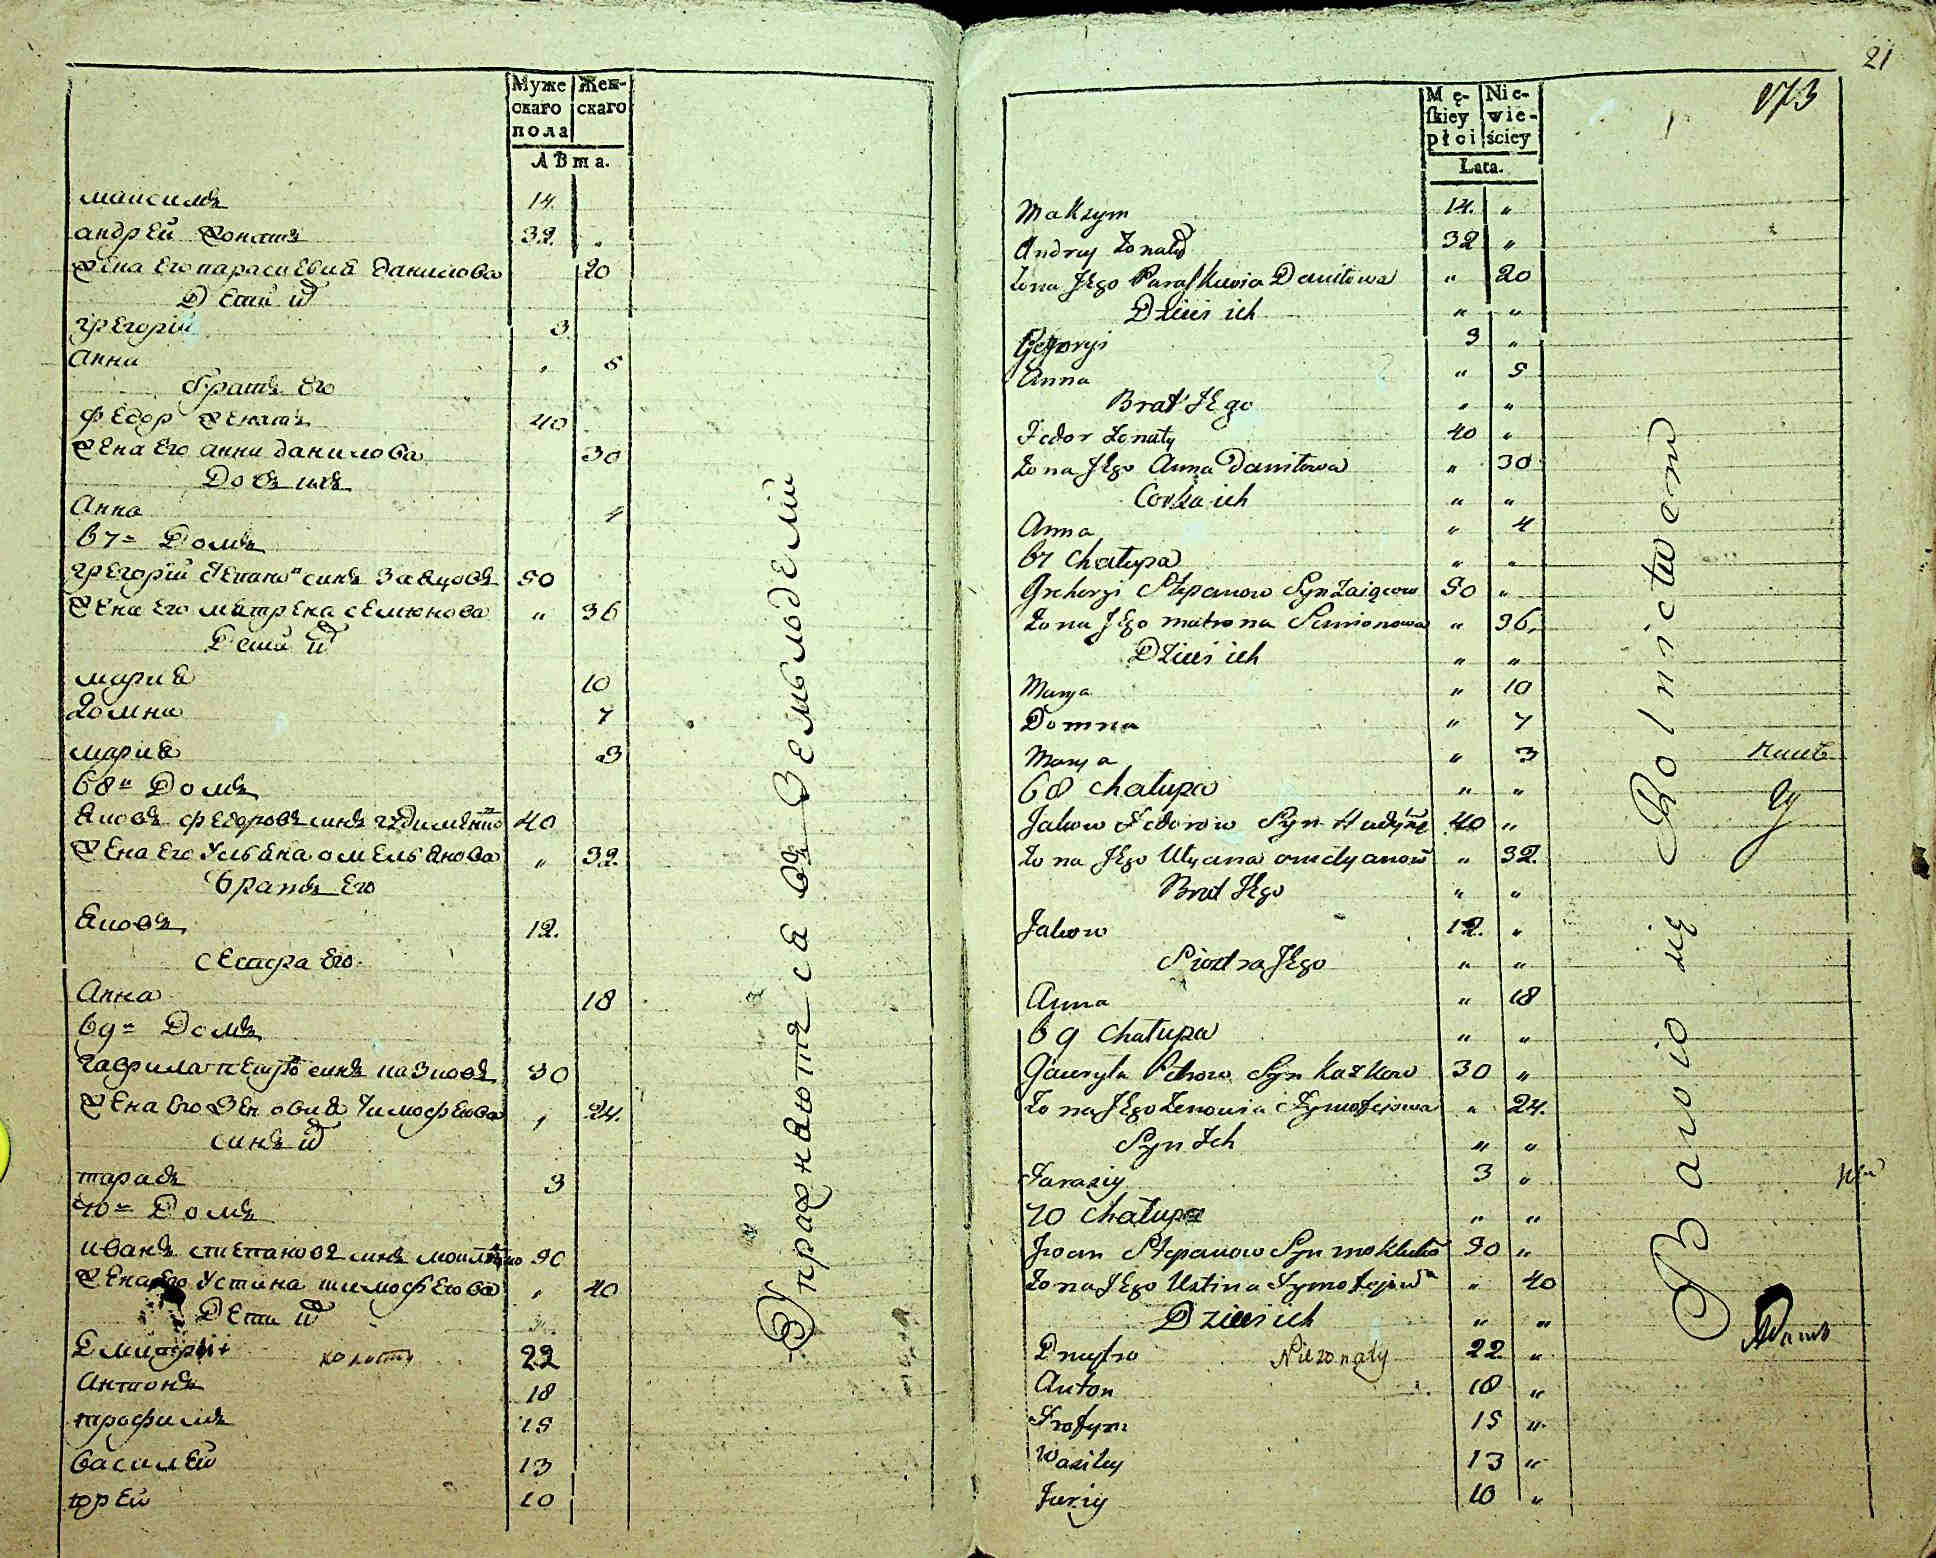 Муже
скаго
пола
Жен-
скаго
лѣта.
максимъ 14.
андрей жонатъ 32. „
жена его параскевия данилова 20
Дети их
григорий 3
анна „ 5
братъ его
федор женатъ 40
жена его анна данилова 30
Дочь ихъ
Анна 4
67= Домъ
григорий степановъ синъ заяцовъ 50
жена его матрена семионова „ 36
Дети их
мария 10
домна 7
мария 3
68= Домъ
яковъ федоровъ синъ 40
жена его Ульяна омельянова „ 32.
братъ его
яковъ 12.
сестра его.
Анна 18
69= Домъ
гаврила петровъ синъ казковъ 30
жена его Зеновия Тимофеева „ 24.
синъ их
тарасъ 3
70= Домъ
иванъ степановъ синъ 90
жена его Устина тимофеева „ 40
Дети их
Дмитрий холостъ 22
Антонъ 18
трофимъ 15
василей 13
юрей 10
Упражняются въ Земледелии
21
Mę-
skiey
płci
Nie-
wie-
ściey
Lata.
173
Maksym 14. „
Andrey Żonaty 32 „
Żona Jego Paraskiewia Daniłowa „ 20
Dzieci ich „ „
Gregoryi 3 „
Anna „ 5
Brat Jego „ „
Fedor Żonaty 40 „
Żona Jego Anna Daniłowa „ 30
Corka ich „ „
Anna „ 4
67 Chałupa „ „
Grehory Stepanow Syn Zaiącow 50 „
Żona Jego Matrona Simionowa „ 36.
Dzieci ich „ „
Marya „ 10
Domna „ 7
Marya „ 3
68 chałupa „ „
Jakow Fedorow Syn 40 „
Żona Jego Ulyana omelyanow „ 32.
Brat Jego „ „
Jakow 12. „
Siostra Jego „ „
Anna „ 18
69 Chałupa „ „
Gawryła Petrow Syn Kazkow 30 „
Żona Jego Zenowia Tymofejowa „ 24.
Syn Ich „ „
Tarasiy 3 „
70 Chałupa „ „
Iwan Stepanow Syn 90 „
Żona Jego Ustina Tymofejow „ 40
Dzieci ich „ „
Dmytro Nieżonaty 22 „
Anton 18 „
Trofym 15 „
Wasiley 13 „
Juriy 10 „
Bawio się Rolnictwem